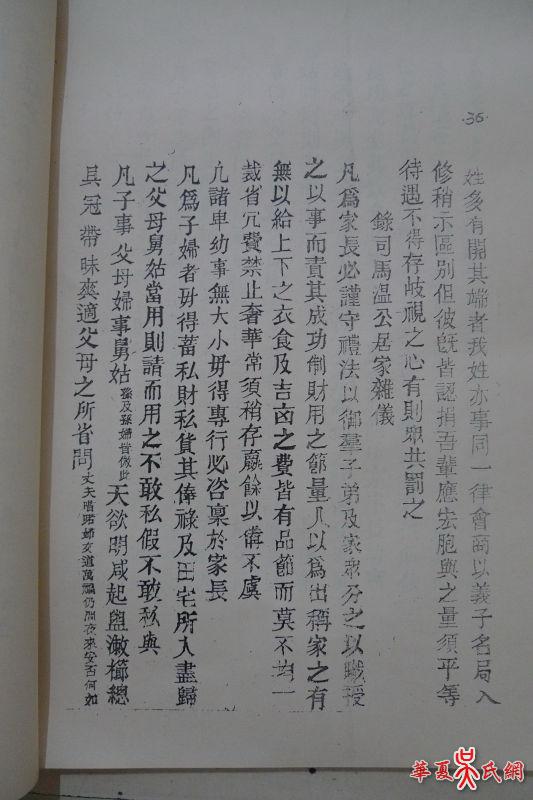 36
姓多有開其端者我姓亦事同一律會商以義子名局入
修稍示區別但彼既皆認捐吾輩應宏胞與之量須平等
待遇不得存歧視之心有則眾共罰之
錄司馬温公居家雜儀
凡爲家長必謹守禮法以御羣子弟及家眾分之以職授
之以事而責其成功制財用之節量入以爲出稱家之有
無以給上下之衣食及吉凶之費皆有品節而莫不均一
裁省冗費禁止奢華常須稍存羸餘以備不虞
凡諸卑幼事無大小毋得專行必咨稟於家長
凡爲子婦者毋得蓄私財私貨其俸祿及田宅所入盡歸
之父母舅姑當用則請而用之不敢私假不敢私與
凡子事父母婦事舅姑孫及孫婦皆倣此天欲明咸起盥漱櫛總
具冠帶昧爽適父母之所省問丈夫唱喏婦女道萬福仍問夜來安否何如
華夏吳氏網